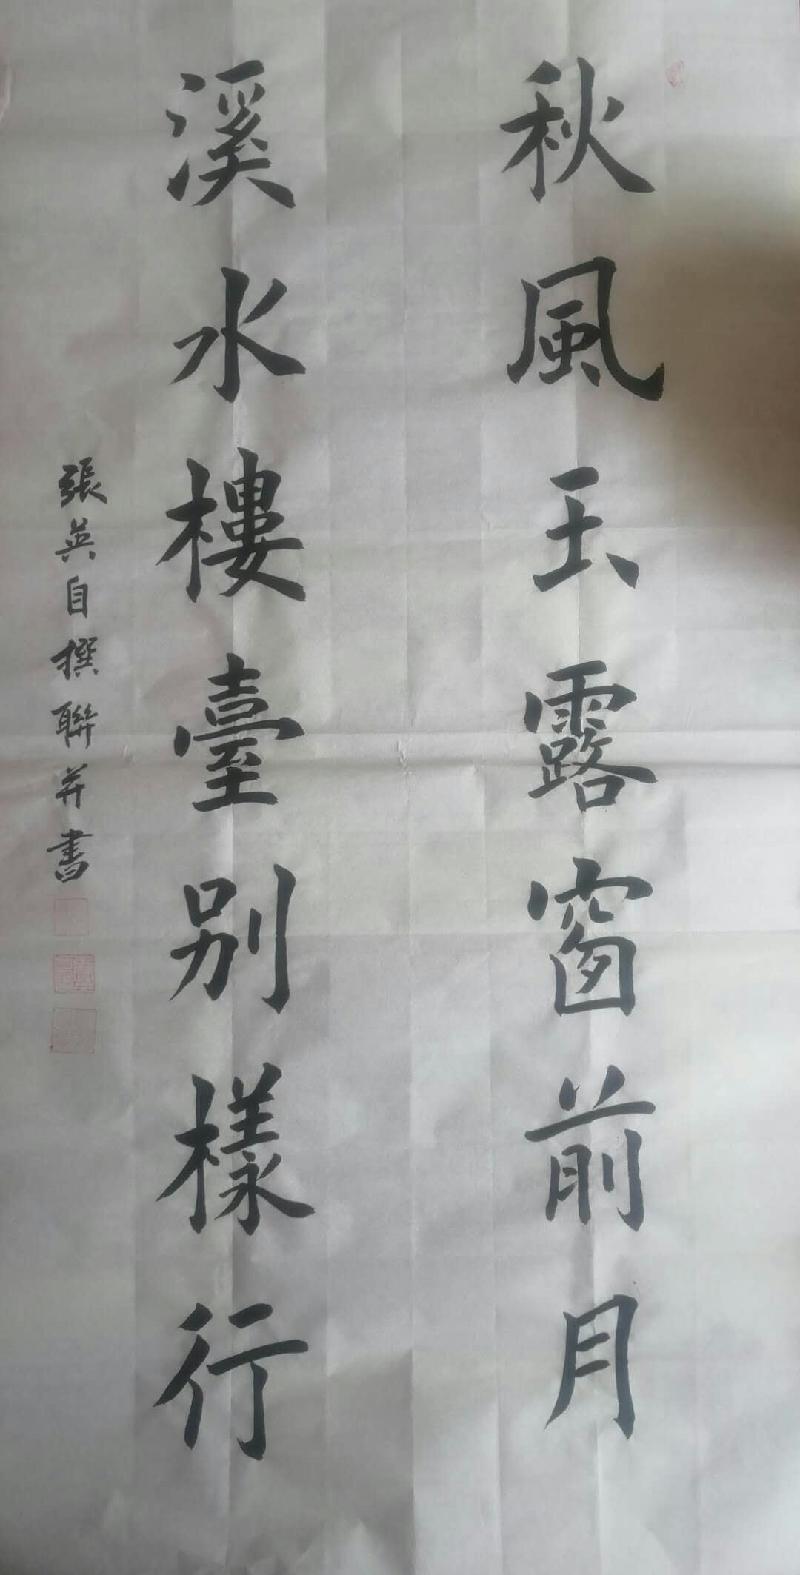 秋風玉露窗前月
溪水樓臺別樣行
張英自撰聯并書